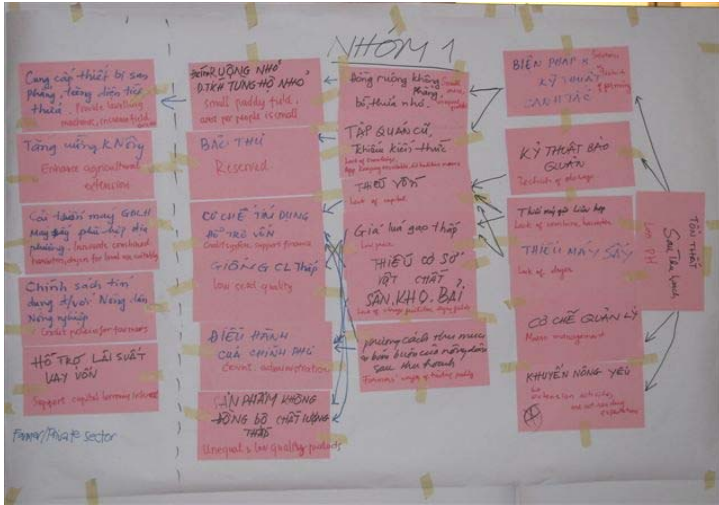 NHÓM 1
Cung cấp thiết bị san
phẳng, tăng diện tích
thửa. Provide levelling
machine, increase field
Tăng cường K.Nông
Enhance agricultural
extension
Cải tiến máy GĐLH
Máy sấy phù hợp địa
phương. Innovate combined
harvester, dryer for local
Chính sách tín
dụng đ/với Nông dân
Nông nghiệp
Credit policies for farmers
HỖ TRỢ LÃI SUẤT
VAY VỐN
Support capital interest
Farmer/Private sector
RUỘNG NHỎ
D.TÍCH TỪNG HỘ NHỎ
small paddy field,
area per people is small
BẢO THỦ
Reserved
CƠ CHẾ TÍN DỤNG
HỖ TRỢ VỐN
Credit system, support finance
GIỐNG CL Thấp
low seed quality
ĐIỀU HÀNH
CỦA CHÍNH PHỦ
Govnt. administration
SẢN PHẨM KHÔNG
ĐỒNG BỘ CHẤT LƯỢNG
THẤP
Unequal & low quality products
Đồng ruộng không
phẳng,
bờ thửa nhỏ.
TẬP QUÁN CŨ,
thiếu kiến thức
Lack of knowledge
THIẾU VỐN
Lack of capital
Giá lúa gạo thấp
Low price
THIẾU CƠ SỞ
VẬT CHẤT
SÂN, KHO, BÃI
Lack of storage facilities, drying fields
phương cách thu mua
sau thu hoạch
Farmers' ways of trading paddy
BIỆN PHÁP K
KỸ THUẬT
CANH TÁC
of farming
KỸ THUẬT BẢO
QUẢN
Technical of storage
Thiếu máy gặt liên hợp
Lack of combine harvester
THIẾU MÁY SẤY
Lack of dryer
CƠ CHẾ QUẢN LÝ
management
KHUYẾN NÔNG YẾU
extension activities,
TỔN THẤT
Sau Thu hoạch
Loss PH